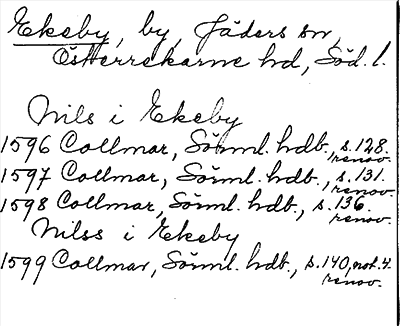 Ekeby, by, Jäders sn,
Österrekarne hd, Söd. l.
Nils i Ekeby
1596 Collmar, Sörml. hdb., s. 128.
renov.
1597 Collmar, Sörml. hdb., s. 131.
renov.
1598 Collmar, Sörml. hdb., s. 136.
renov.
Nilss i Ekeby
1599 Collmar, Sörml. hdb., s. 140, not. 4.
renov.